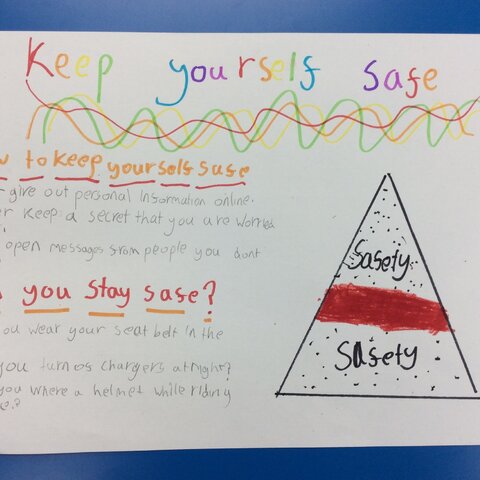 Keep yourself Safe
w to keep yoursels sase
r give out personal information online.
er Keep a secret that you are worried
open messages srom people you dont
you stay sase?
ou wear your seat belt in the
you turn os chargers at night?
you where a helmet while riding
e?
Sasety
Sasety